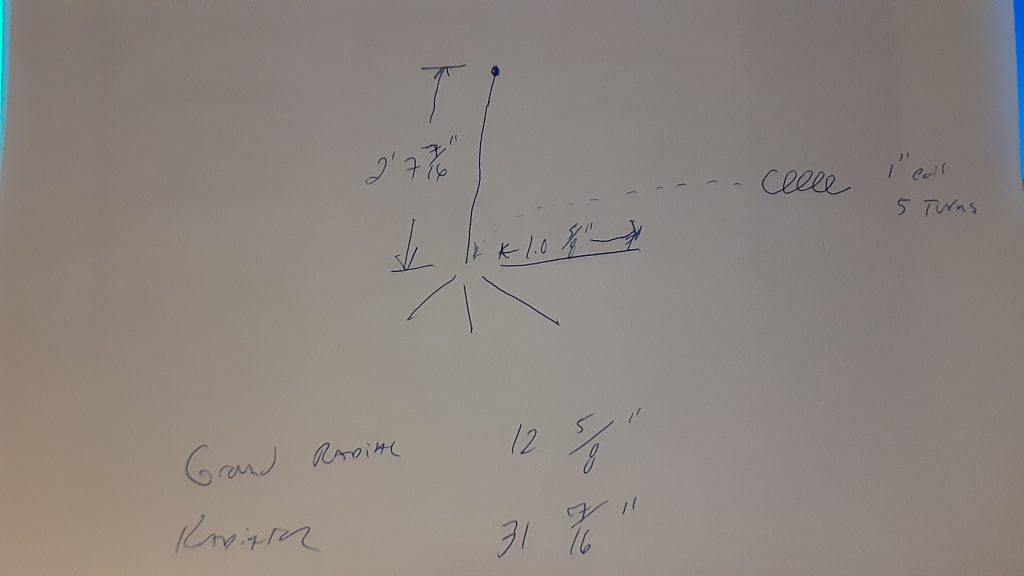 2' 7 7/16"
1" coil
5 Turns
1.0 5/8"
Ground Radial 12 5/8"
Radiator 31 7/16"